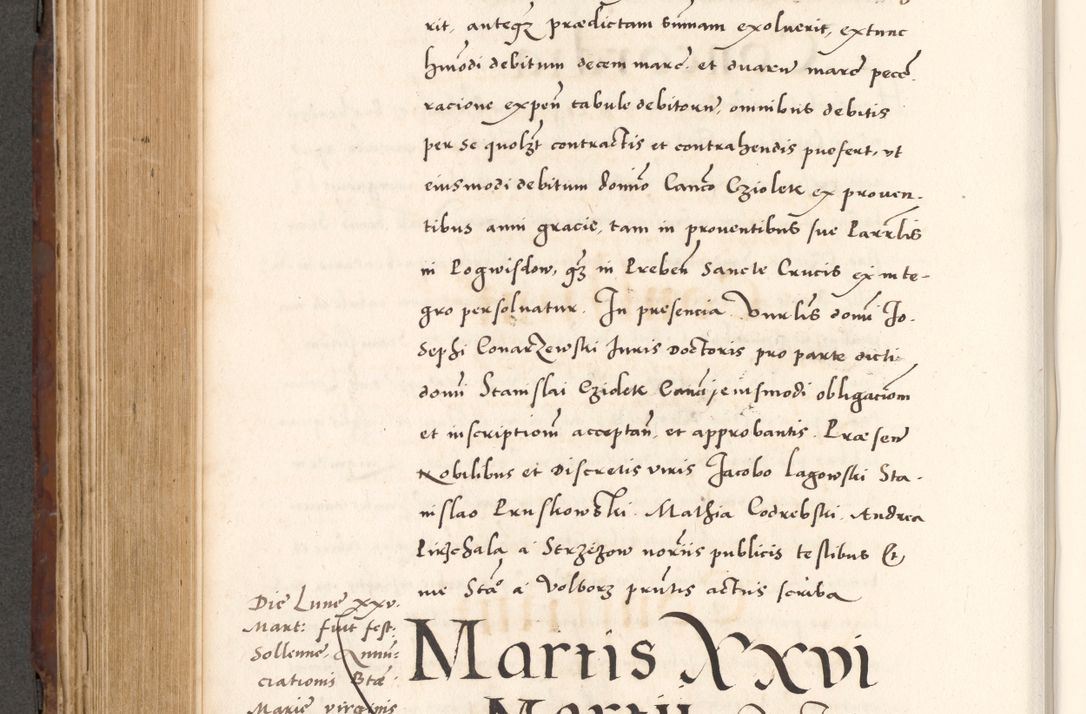 rit, anteqȝ prædictam sum̄am exoluerit, extunc
hm̄odi debitum decem marc̄. et duarū marc̄ pecc̄.
racione expen̄ tabule debitorū, omnibus debitis
per se quolʒt contractis et contrahendis prefert, vt
eiusmodi debitum domīo Canco Cziolek ex proven-
tibus anni gracie, tam in proventibus sue Parrlis
in Pogwisdow, qȝ in Preben̄ Sancte Crucis ex inte-
gro persoluatur. In presencia Vnrlis domī Jo-
sephi Conarzewski Juris Doctoris pro parte dicti
domī Stanislai Cziolek Canci, eiusmodi obligacīom
et inscriptiom̄ acceptan̄, et approbantis. Præsen̄
Nobilibus et Discretis viris Jacobo Lagowski Sta-
nislao Pruskowski. Mathia Codrebski. Andrea
Pirzchala a Strzezow nor̄iis publicis testibus &
me Sta° a Volborz prn̄tis actus scriba
Die Lune xxv.
Mart: fuit fest:
Sollenne, Annū=
ciationis Btæ
Marie virginis
Martis XXvi
Martii